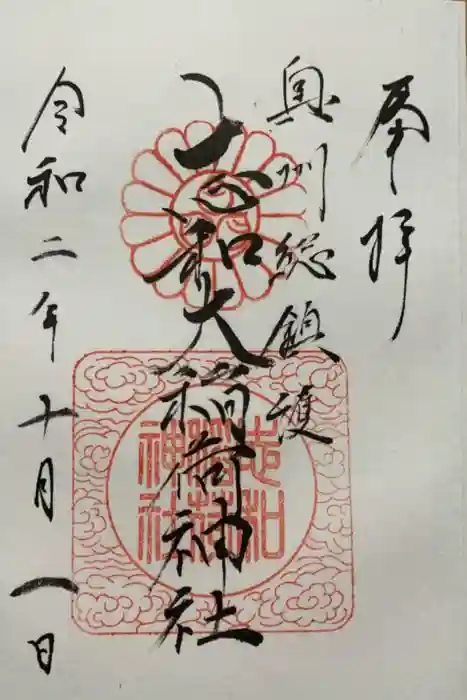 奉拝
奥州総鎮護
志和大稲荷神社
令和二年十月一日
志和
稲荷
神社